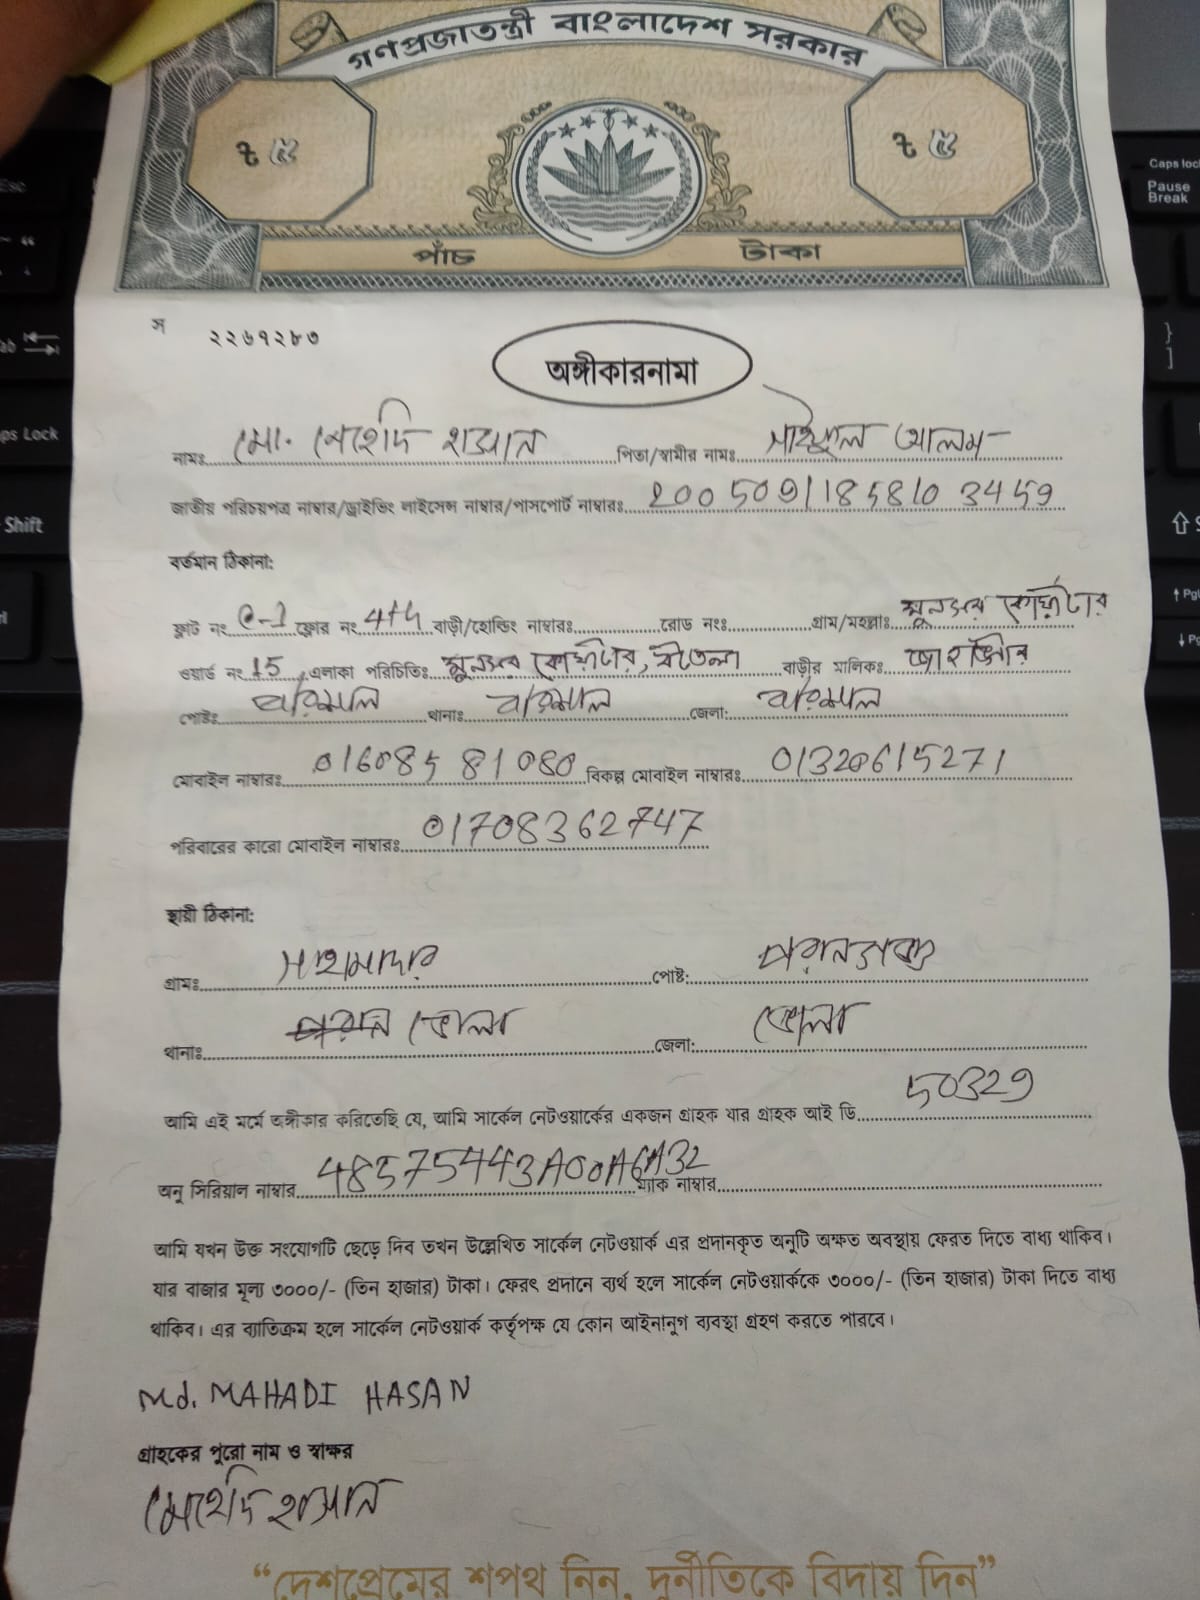 গণপ্রজাতন্ত্রী বাংলাদেশ সরকার
৳ ৫ ৳ ৫
পাঁচ টাকা
স ২২৬৭২৮৩
অঙ্গীকারনামা
নামঃ মো. মেহেদি হাসান পিতা/স্বামীর নামঃ সাইফুল আলম
জাতীয় পরিচয়পত্র নাম্বার/ড্রাইভিং লাইসেন্স নাম্বার/পাসপোর্ট নাম্বারঃ 20050911858103459
বর্তমান ঠিকানা:
ফ্লাট নং ফ্লোর নং 4th বাড়ী/হোল্ডিং নাম্বারঃ রোড নংঃ গ্রাম/মহল্লাঃ
ওয়ার্ড নং 15 এলাকা পরিচিতিঃ বাড়ীর মালিকঃ
পোষ্টঃ বরিশাল থানাঃ বরিশাল জেলা: বরিশাল
মোবাইল নাম্বারঃ 01608581080 বিকল্প মোবাইল নাম্বারঃ 01320615271
পরিবারের কারো মোবাইল নাম্বারঃ 01708362747
স্থায়ী ঠিকানা:
গ্রামঃ পোষ্ট:
থানাঃ ভোলা জেলা: ভোলা
আমি এই মর্মে অঙ্গীকার করিতেছি যে, আমি সার্কেল নেটওয়ার্কের একজন গ্রাহক যার গ্রাহক আই ডি 50329
অনু সিরিয়াল নাম্বার 48575443A00A6A32 ম্যাক নাম্বার
আমি যখন উক্ত সংযোগটি ছেড়ে দিব তখন উল্লেখিত সার্কেল নেটওয়ার্ক এর প্রদানকৃত অনুটি অক্ষত অবস্থায় ফেরত দিতে বাধ্য থাকিব।
যার বাজার মূল্য ৩০০০/- (তিন হাজার) টাকা। ফেরৎ প্রদানে ব্যর্থ হলে সার্কেল নেটওয়ার্ককে ৩০০০/- (তিন হাজার) টাকা দিতে বাধ্য
থাকিব। এর ব্যাতিক্রম হলে সার্কেল নেটওয়ার্ক কর্তৃপক্ষ যে কোন আইনানুগ ব্যবস্থা গ্রহণ করতে পারবে।
Md. MAHADI HASAN
গ্রাহকের পুরো নাম ও স্বাক্ষর
মেহেদি হাসান
“দেশপ্রেমের শপথ নিন, দুর্নীতিকে বিদায় দিন”
Esc
Caps loc
Pause
Break
ab
ps Lock
Shift